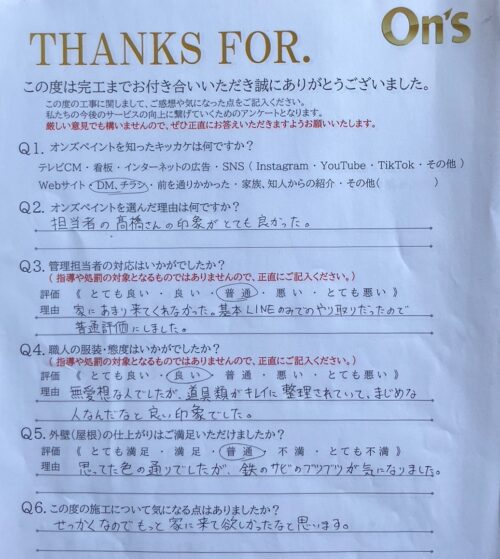 On's
THANKS FOR.
この度は完工までお付き合いいただき誠にありがとうございました。
この度の工事に関しまして、ご感想や気になった点をご記入ください。
私たちの今後のサービスの向上に繋げていくためのアンケートとなります。
厳しい意見でも構いませんので、ぜひ正直にお答えいただきますようお願いいたします。
Q1. オンズペイントを知ったキッカケは何ですか?
テレビCM・看板・インターネットの広告・SNS ( Instagram・YouTube・TikTok・その他 )
Webサイト・DM、チラシ・前を通りかかった・家族、知人からの紹介・その他( )
Q2. オンズペイントを選んだ理由は何ですか?
担当者の髙橋さんの印象がとても良かった。
Q3. 管理担当者の対応はいかがでしたか?
( 指導や処罰の対象となるものではありませんので、正直にご記入ください。)
評価 《 とても良い ・ 良い ・ 普通 ・ 悪い ・ とても悪い 》
理由 家にあまり来てくれなかった。基本LINEのみでのやり取りだったので
普通評価にしました。
Q4. 職人の服装・態度はいかがでしたか?
( 指導や処罰の対象となるものではありませんので、正直にご記入ください。)
評価 《 とても良い ・ 良い ・ 普通 ・ 悪い ・ とても悪い 》
理由 無愛想な人でしたが、道具類がキレイに整理されていて、まじめな
人なんだなと良い印象でした。
Q5. 外壁(屋根)の仕上がりはご満足いただけましたか?
評価 《 とても満足 ・ 満足 ・ 普通 ・ 不満 ・ とても不満 》
理由 思ってた色の通りでしたが、鉄のサビのブツブツが気になりました。
Q6. この度の施工について気になる点はありましたか?
せっかくなのでもっと家に来て欲しかったなと思います。